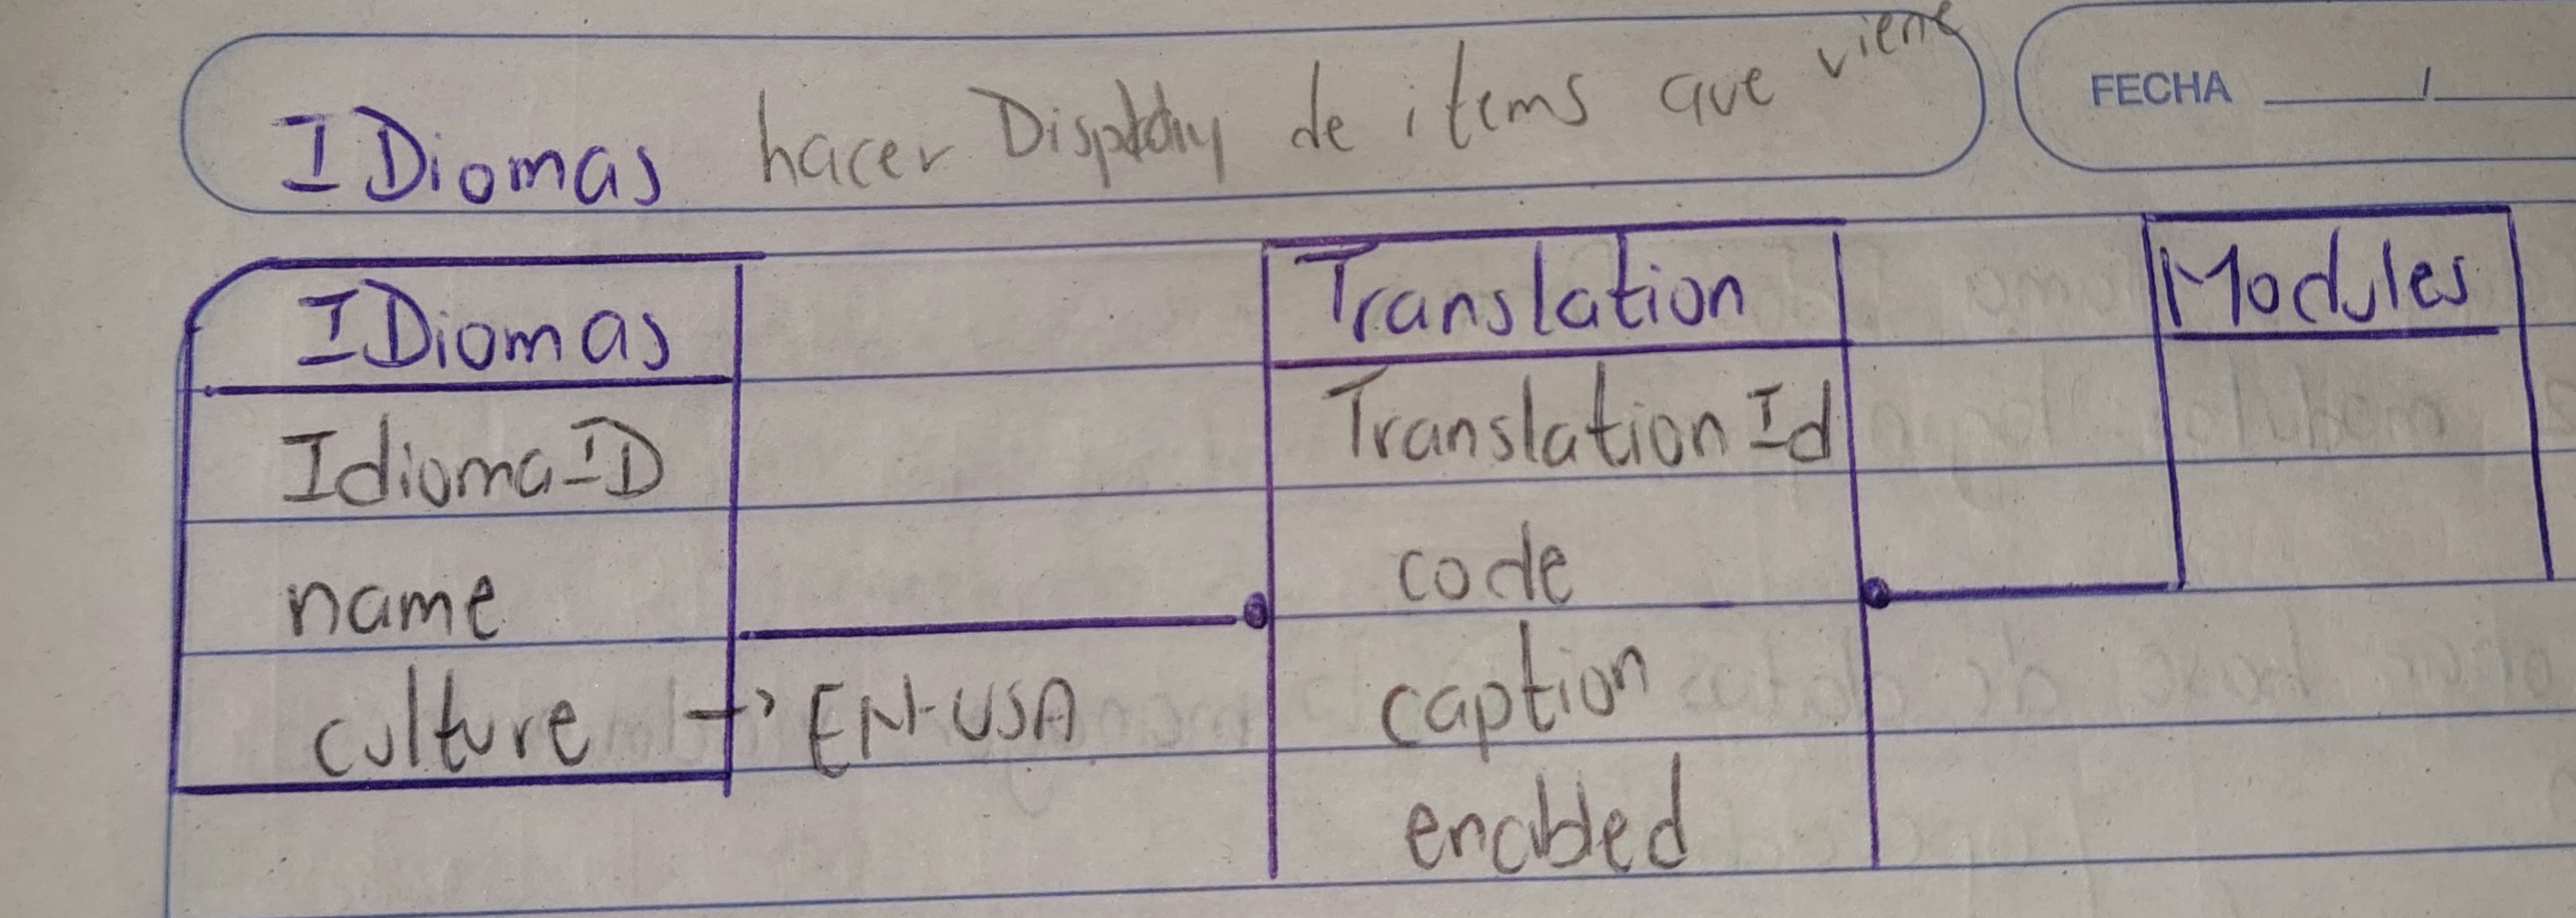 IDiomas hacer Display de items que viene
FECHA ____/____
IDiomas
IdiomaID
name
culture → EN-USA
Translation
Translation Id
code
caption
enabled
Modules